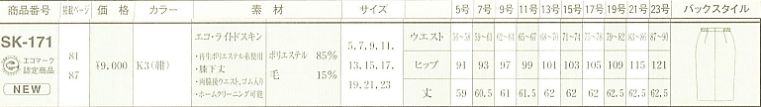 商品番号 掲載ページ 価格 カラー 素材 サイズ 5号 7号 9号 11号 13号 15号 17号 19号 21号 23号 バックスタイル
SK-171
エコマーク
認定商品
NEW
81
87
¥9,000
K3(紺)
エコ・ライトドスキン
・再生ポリエステル糸使用
・膝下丈
・両脇後ウエスト、ゴム入り
・ホームクリーニング可能
ポリエステル 85%
毛 15%
5, 7, 9, 11,
13, 15, 17,
19, 21, 23
ウエスト 56~58 59~61 62~64 65~67 68~70 71~74 75~78 79~82 83~86 87~90
ヒップ 91 93 97 99 101 103 105 109 115 121
丈 59 60.5 61 61.5 62 62 62 62.5 62.5 62.5